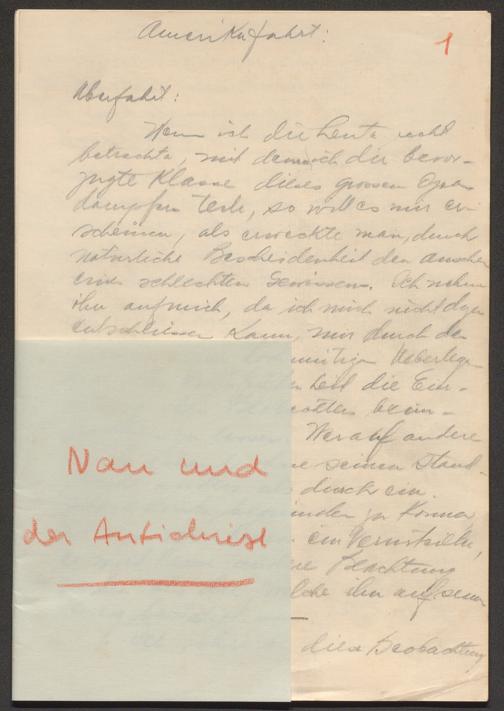 Amerikafahrt:
1
Überfahrt:
Wenn ich die Leute recht
betrachte, mit denen ich die bevor-
zugte Klasse dieses grossen Ozean
dampfers teile, so will es mir er-
scheinen, als erweckte man, durch
natürliche Bescheidenheit den anschein
eines schlechten Gewissens. Ich nehme
ihn auf mich, da ich mich nicht dazu
entschliessen kann, mir durch den
mütigen Ueberlege
heit die Ein-
beim-
Wer auf andere
ne seinen Stand-
durch ein.
zu können
ein Vorurteilen,
Beachtung
lche ihn auf seine
diese Beobachtung
Nau und
der Antichrist